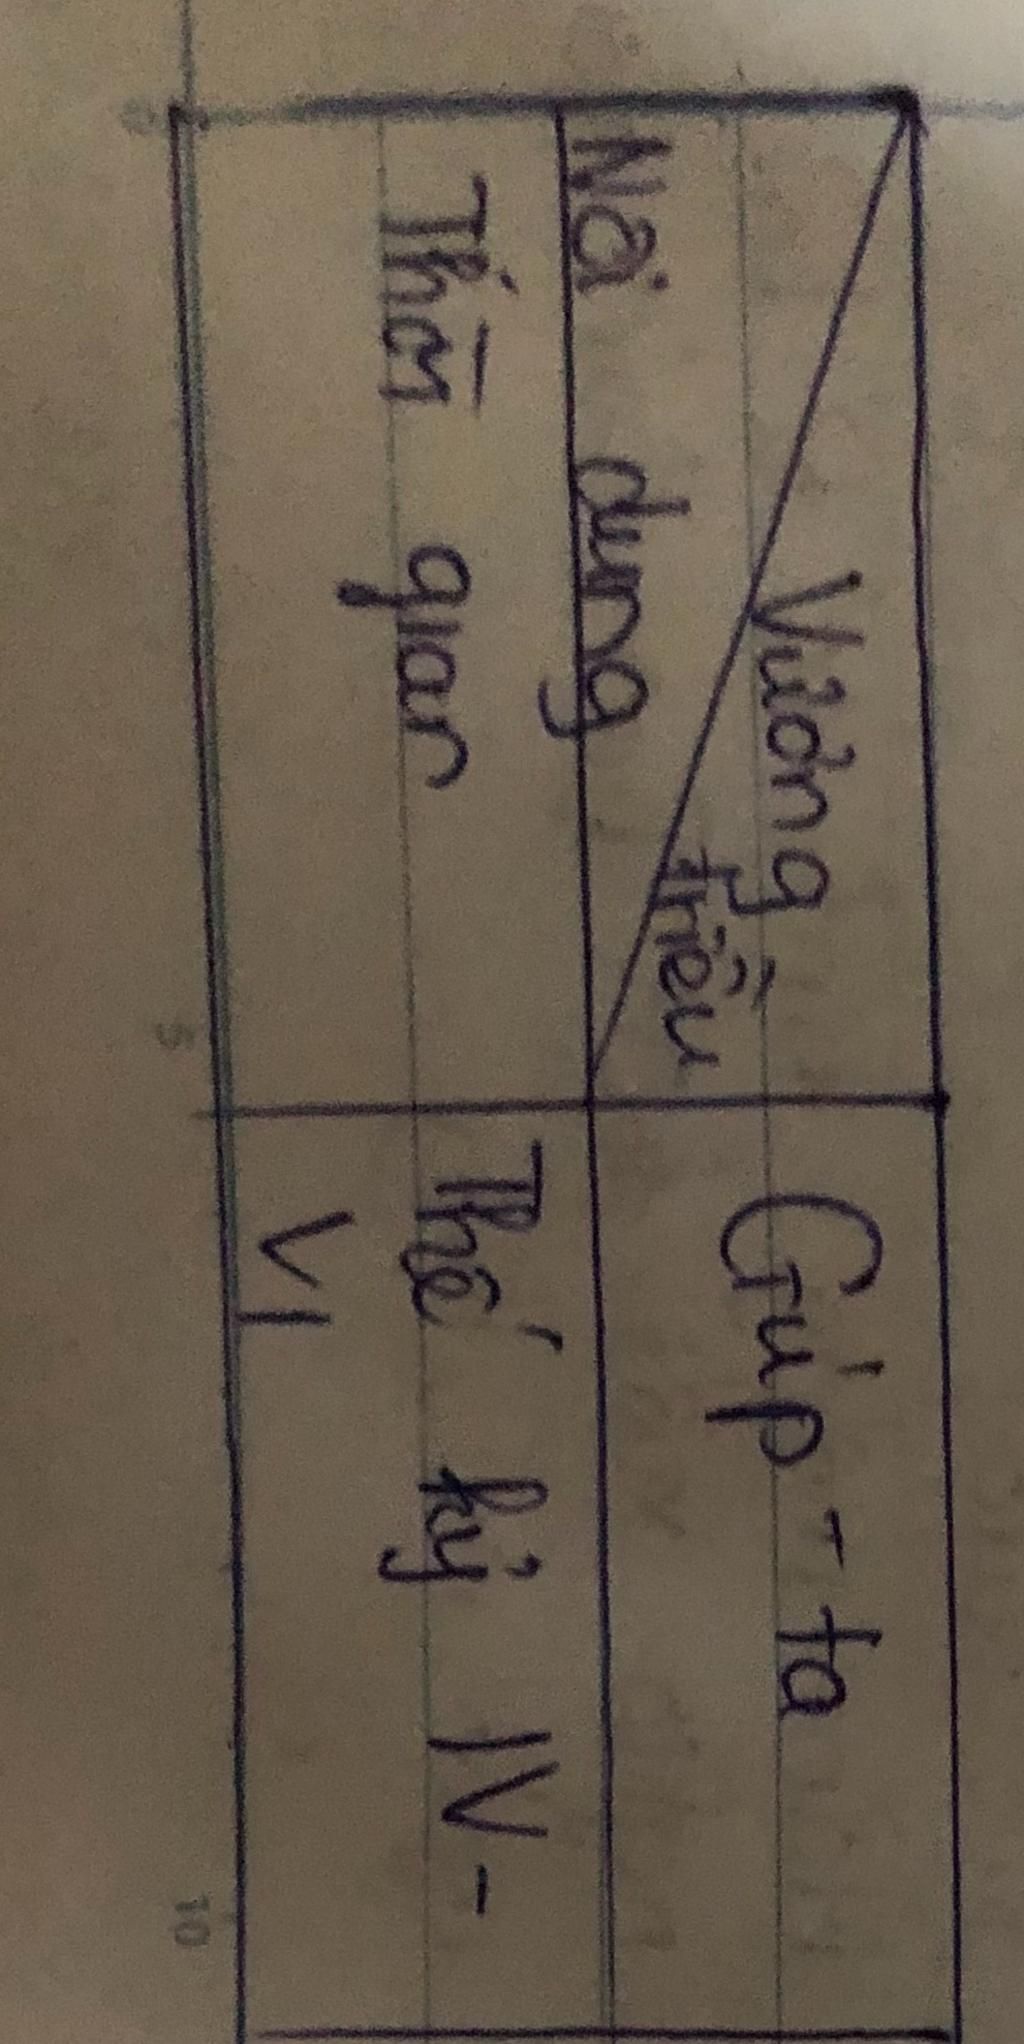 Vương
triều
Nội dung
Gúp - ta
Thời gian
Thế kỷ IV -
VI
5
10